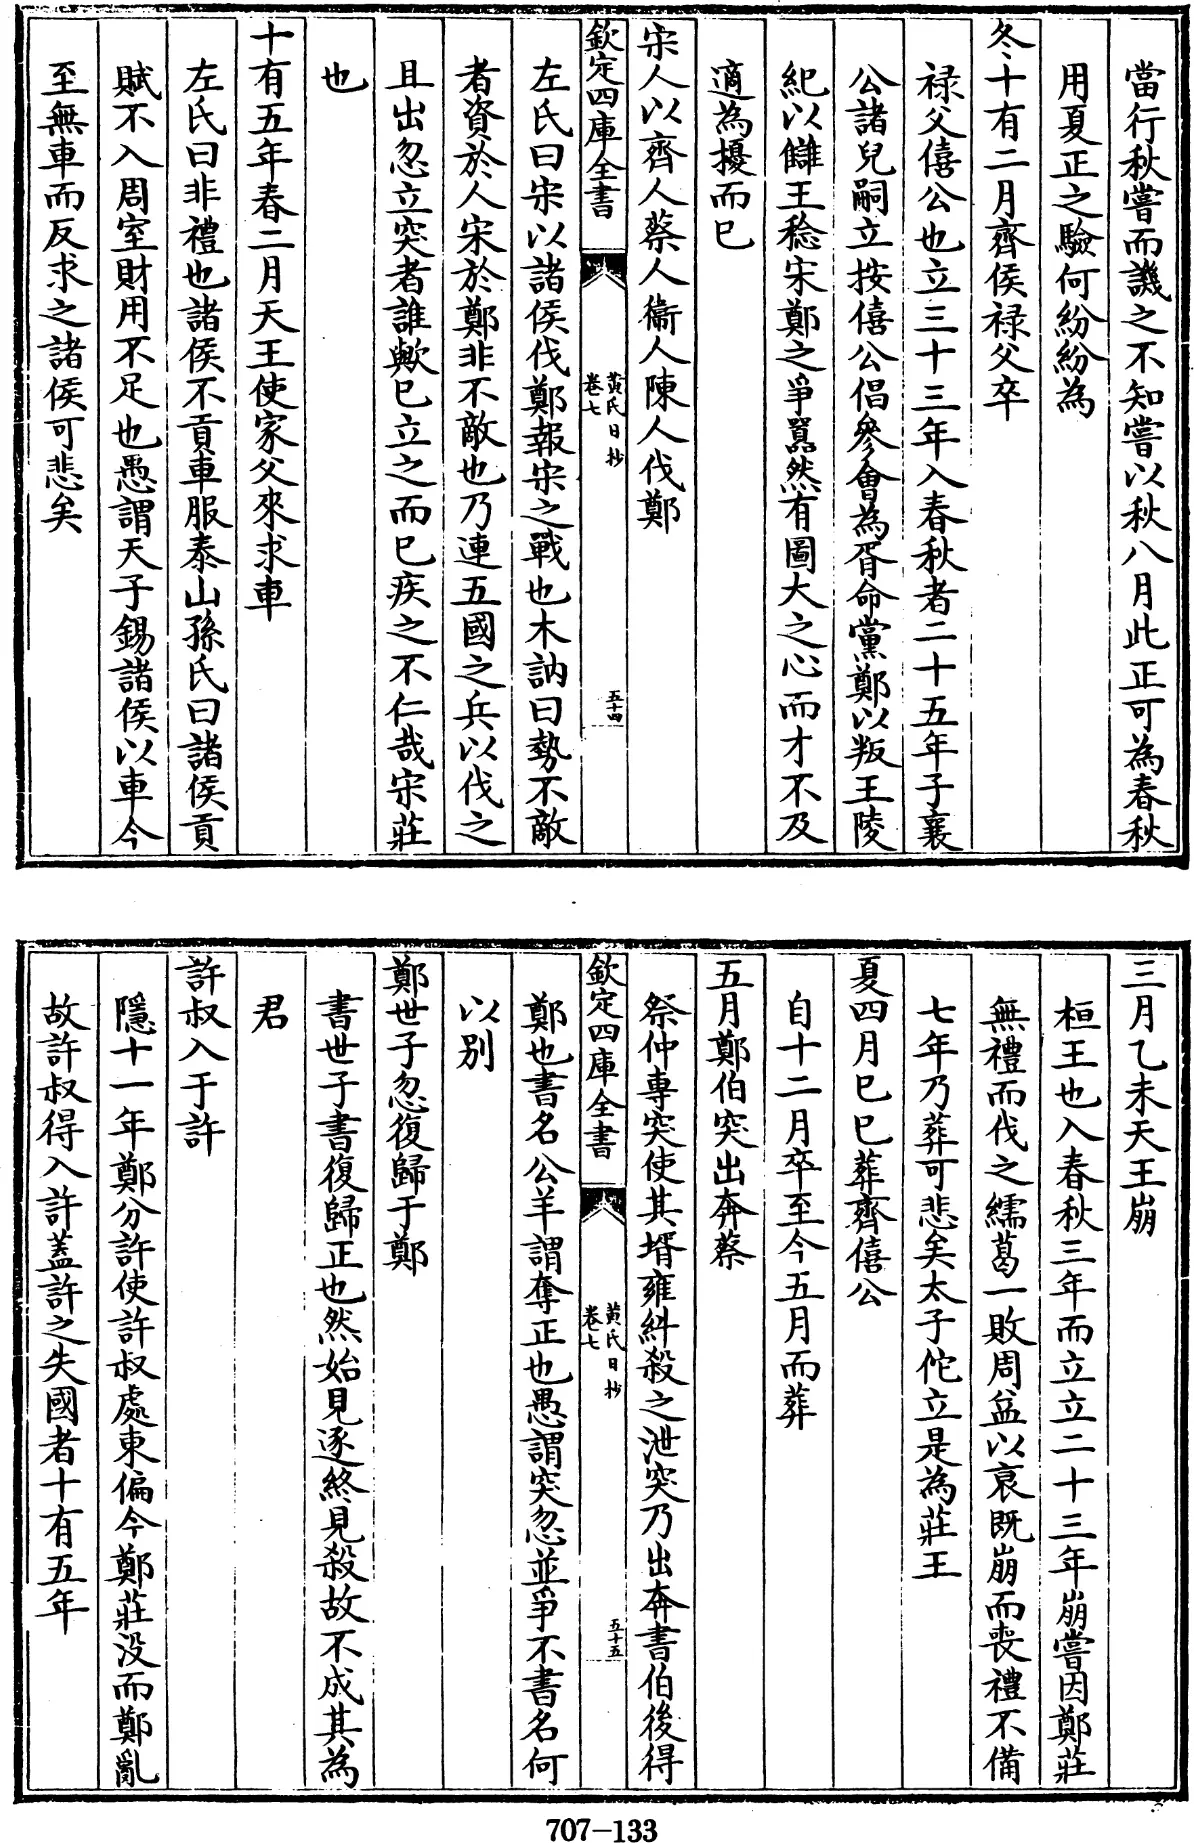 當行秋嘗而譏之不知嘗以秋八月此正可為春秋
用夏正之驗何紛紛為
冬十有二月齊侯禄父卒
禄父僖公也立三十三年入春秋者二十五年子襄
公諸兒嗣立按僖公倡參㑹為胥命黨鄭以叛王陵
紀以讎王稔宋鄭之爭囂然有圖大之心而才不及
適為擾而已
宋人以齊人蔡人衞人陳人伐鄭
欽定四庫全書
黄氏日抄
卷七
五十四
左氏曰宋以諸侯伐鄭報宋之戰也木訥曰勢不敵
者資於人宋於鄭非不敵也乃連五國之兵以伐之
且出忽立突者誰歟已立之而已疾之不仁哉宋莊
也
十有五年春二月天王使家父來求車
左氏曰非禮也諸侯不貢車服泰山孫氏曰諸侯貢
賦不入周室財用不足也愚謂天子錫諸侯以車今
至無車而反求之諸侯可悲矣
三月乙未天王崩
桓王也入春秋三年而立立二十三年崩嘗因鄭莊
無禮而伐之繻葛一敗周益以衰既崩而喪禮不備
七年乃葬可悲矣太子佗立是為莊王
夏四月己巳葬齊僖公
自十二月卒至今五月而葬
五月鄭伯突出奔蔡
祭仲專突使其壻雍糾殺之泄突乃出奔書伯後得
欽定四庫全書
黄氏日抄
卷七
五十五
鄭也書名公羊謂奪正也愚謂突忽並爭不書名何
以别
鄭世子忽復歸于鄭
書世子書復歸正也然始見逐終見殺故不成其為
君
許叔入于許
隱十一年鄭分許使許叔處東偏今鄭莊没而鄭亂
故許叔得入許蓋許之失國者十有五年
707-133